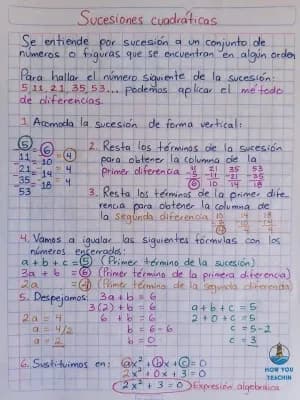 Sucesiones cuadráticas
Se entiende por sucesión a un conjunto de
números o figuras que se encuentran en algún orden
Para hallar el número siguiente de la sucesión:
5, 11, 21, 35, 53... podemos aplicar el método
de diferencias.
1. Acomoda la sucesión de forma vertical:
5
11 = 6
21 = 10 = 4
35 = 14 = 4
53 = 18 = 4
2. Resta los términos de la sucesión
para obtener la columna de la
primer diferencia
11 21 35 53
-5 -11 -21 -35
6 10 14 18
3. Resta los términos de la primer dife-
rencia para obtener la columna de
la segunda diferencia
10 14 18
4 4 4
4. Vamos a igualar las siguientes fórmulas con los
números encerrados:
a + b + c = 5 (Primer término de la sucesión)
3a + b = 6 (Primer término de la primera diferencia)
2a = 4 (Primer término de la segunda diferencia)
5. Despejamos:
2a = 4
a = 4/2
a = 2
3a + b = 6
3(2) + b = 6
6 + b = 6
b = 6 - 6
b = 0
a + b + c = 5
2 + 0 + c = 5
c = 5 - 2
c = 3
6. Sustituimos en: ax² + bx + c = 0
2x² + 0x + 3 = 0
2x² + 3 = 0 Expresión algebraica
HOW YOU
TEACHIN